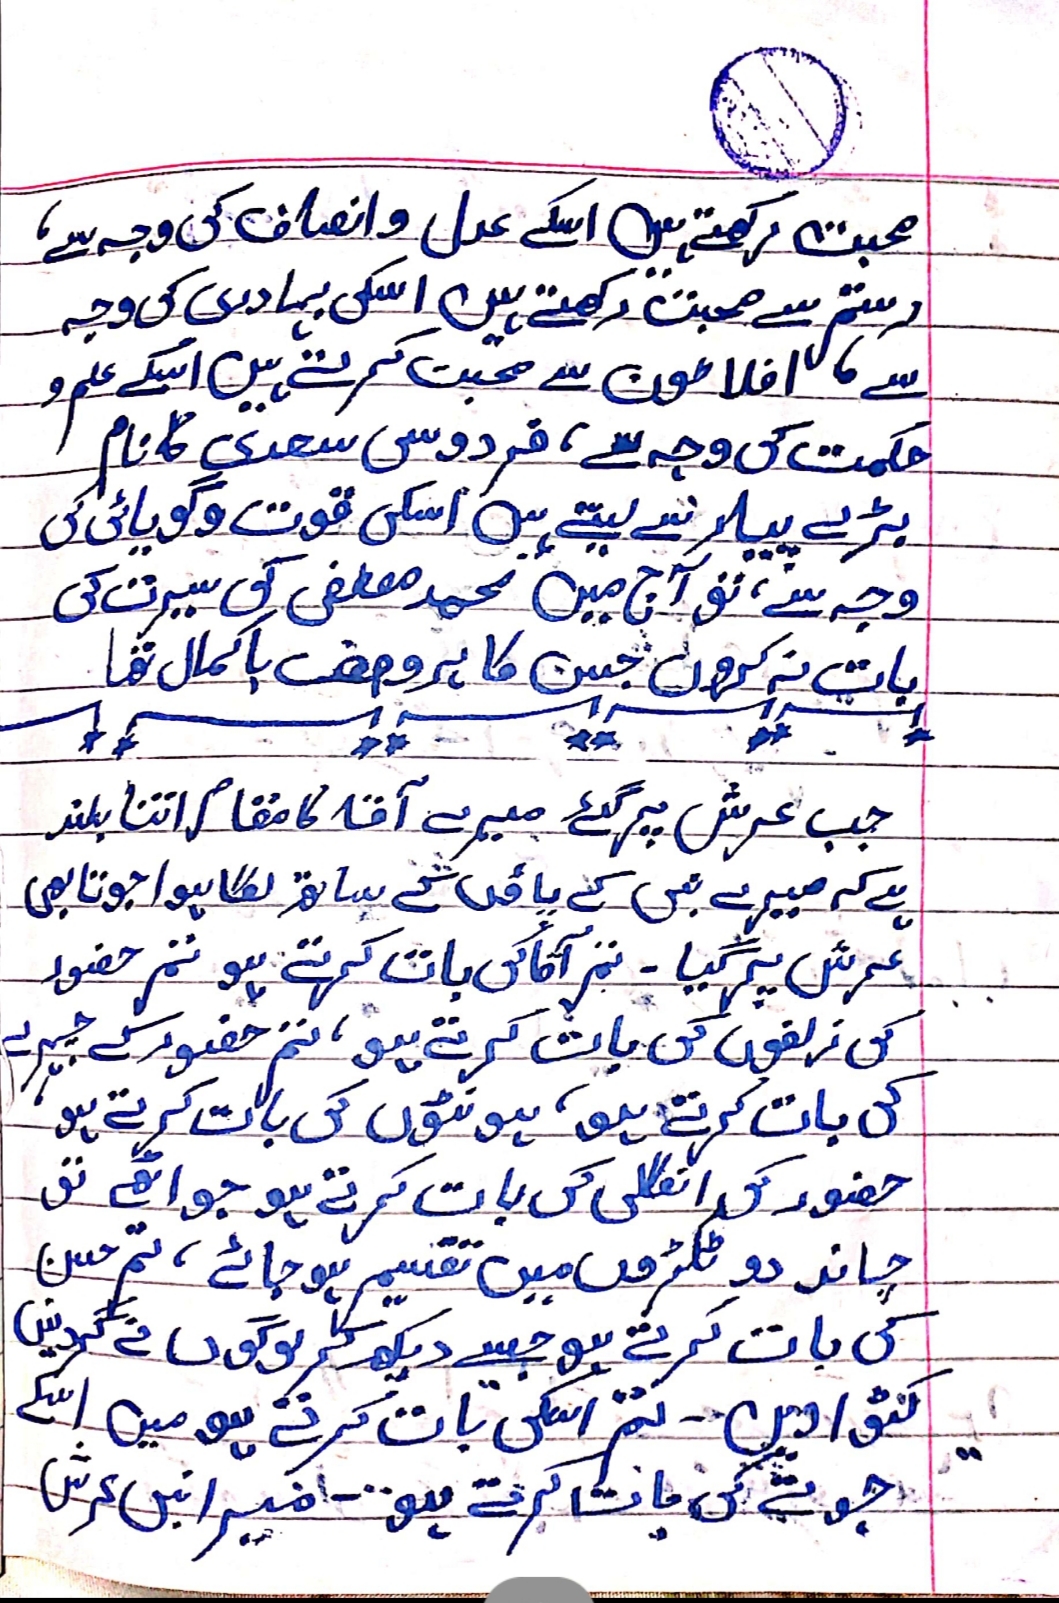 محبت رکھتے ہیں اسکے عدل و انصاف کی وجہ سے،
رستم سے محبت رکھتے ہیں اسکی بہادری کی وجہ
سے، افلاطون سے محبت کرتے ہیں اسکے علم و
حکمت کی وجہ سے، فردوسی سعدی کا نام
بڑے پیار سے لیتے ہیں اسکی قوت و گویائی کی
وجہ سے، تو آج میں محمد مصطفی کی سیرت کی
بات نہ کروں جس کا ہر وصف باکمال تھا
جب عرش پہ گئے میرے آقا کا مقام اتنا بلند
ہے کہ میرے نبی کے پاؤں کے ساتھ لگا ہوا جوتا بھی
عرش پہ گیا - تم آقا کی بات کرتے ہو تم حضور
کی زلفوں کی بات کرتے ہو، تم حضور کے چہرے
کی بات کرتے ہو، ہونٹوں کی بات کرتے ہو،
حضور کی انگلی کی بات کرتے ہو جو اٹھے تو
چاند دو ٹکڑوں میں تقسیم ہو جائے، تم حسن
کی بات کرتے ہو جسے دیکھ کر لوگوں نے گردنیں
کٹوا دیں - تم اسکی بات کرتے ہو میں اسکے
جوتے کی بات کرتے ہو - میرا نبی عرش